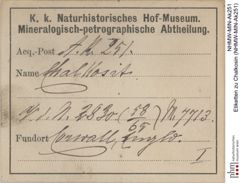 K. k. Naturhistorisches Hof-Museum.
Mineralogisch-petrographische Abtheilung.
Acq.-Post A.k. 251.
Name Chalkosit
Fundort Cornwall, Engld.
I
NHMW-MIN-Ak251
Etiketten zu Chalkosin (NHMW-MIN-Ak251)
nhm